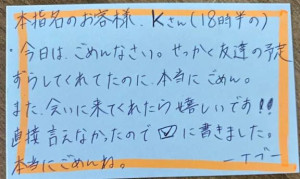 本指名のお客様、Kさん(18時半の)
・今日は、ごめんなさい。せっかく友達の予定
ずらしてくれてたのに、本当にごめん。
また、会いに来てくれたら嬉しいです!!
直接言えなかったので☑に書きました。
本当にごめんね。